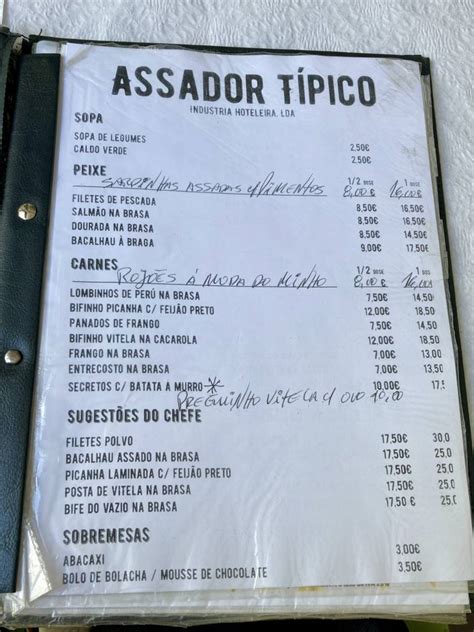 ASSADOR TÍPICO
INDUSTRIA HOTELEIRA, LDA
SOPA
SOPA DE LEGUMES 2.50€
CALDO VERDE 2.50€
PEIXE 1/2 DOSE 1 DOSE
SARDINHAS ASSADAS C/PIMENTOS 8,00€ 16,00€
FILETES DE PESCADA 8,50€ 16,50€
SALMÃO NA BRASA 8,50€ 16,50€
DOURADA NA BRASA 8,50€ 14,50€
BACALHAU À BRAGA 9,00€ 17,50€
CARNES 1/2 DOSE 1 DOS
ROJÕES Á MODA DO MINHO 8,00€ 16,00€
LOMBINHOS DE PERÚ NA BRASA 7,50€ 14,50
BIFINHO PICANHA C/ FEIJÃO PRETO 12,00€ 18,50
PANADOS DE FRANGO 7,50€ 14,50
BIFINHO VITELA NA CACAROLA 12,00€ 18,50
FRANGO NA BRASA 7,00€ 13,00
ENTRECOSTO NA BRASA 7,00€ 13,50
SECRETOS C/ BATATA A MURRO 10,00€ 17,5
PREGUINHO VITELA C/ OVO 10,00
SUGESTÕES DO CHEFE
FILETES POLVO 17,50€ 30,0
BACALHAU ASSADO NA BRASA 17,50€ 25,0
PICANHA LAMINADA C/ FEIJÃO PRETO 17,50€ 25,0
POSTA DE VITELA NA BRASA 17,50€ 25,0
BIFE DO VAZIO NA BRASA 17,50 € 25,0
SOBREMESAS
ABACAXI 3,00€
BOLO DE BOLACHA / MOUSSE DE CHOCOLATE 3,50€